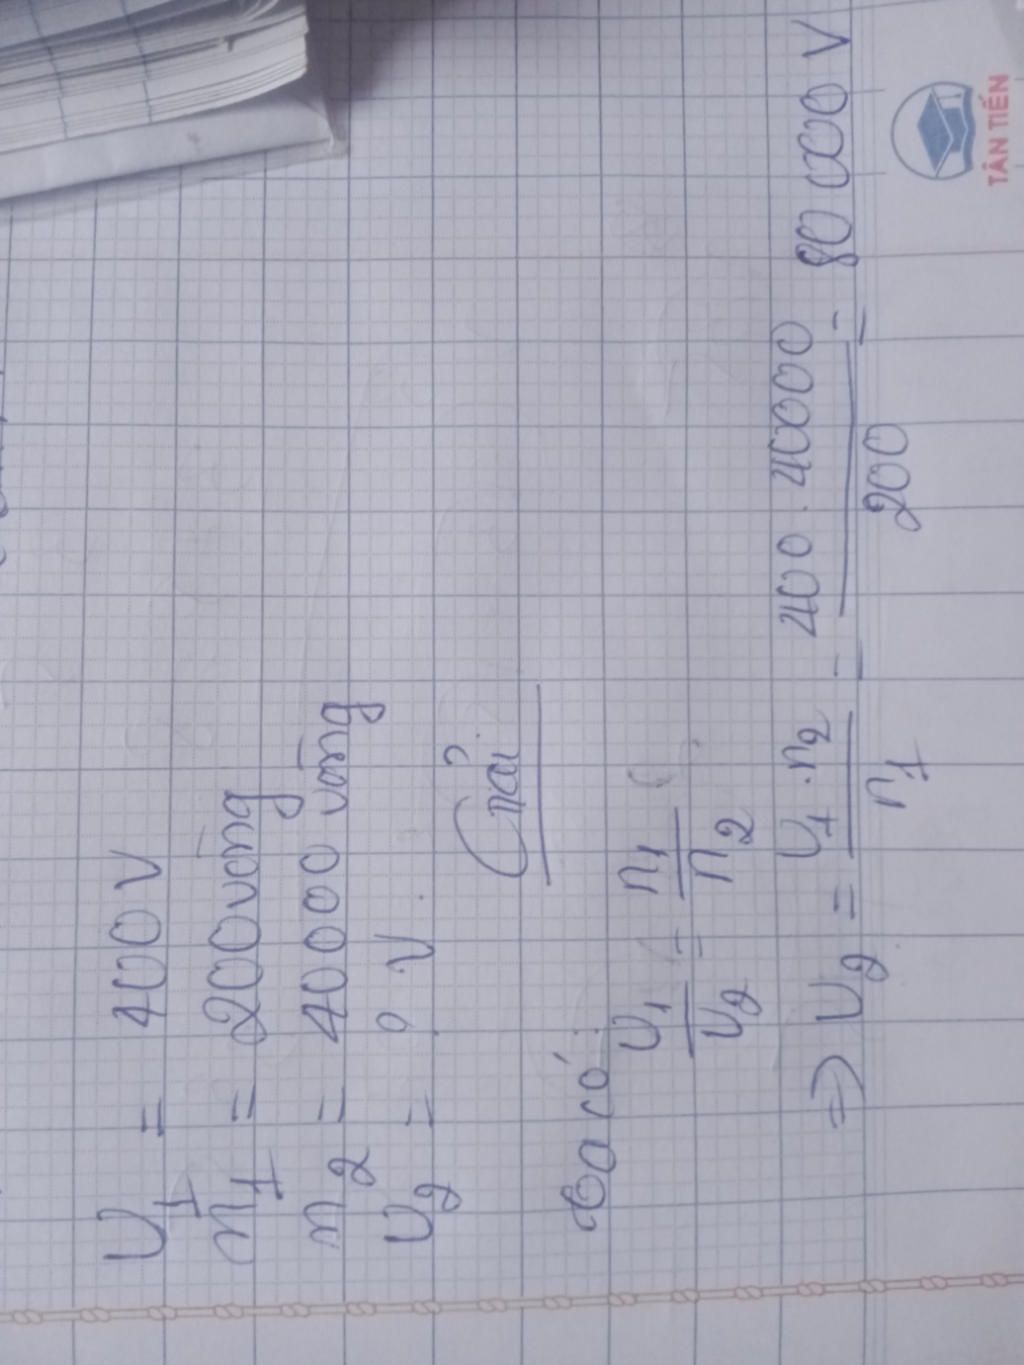 U1 = 400 V
n1 = 200 vòng
n2 = 40000 vòng
U2 = ? V.
Giải
Ta có:
U1/U2 = n1/n2
=> U2 = U1 . n2 / n1 = 400 . 40000 / 200 = 80 000 V
TÂN TIẾN